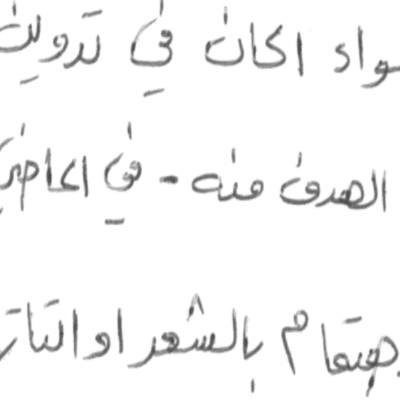 سواء اكان في تدوين
الهدف منه - في الماضي
هتمام بالشعر او التا